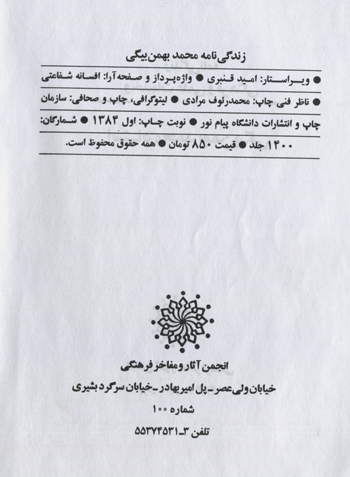 زندگی نامه محمد بهمن بیگی
● ویراستار: امید قنبری ● واژه‌پرداز و صفحه‌آرا: افسانه شفاعتی
● ناظر فنی چاپ: محمدرئوف مرادی ● لیتوگرافی، چاپ و صحافی: سازمان
چاپ و انتشارات دانشگاه پیام نور ● نوبت چاپ: اول ۱۳۸۴ ● شمارگان:
۱۴۰۰ جلد ● قیمت ۸۵۰ تومان ● همه حقوق محفوظ است.
انجمن آثار و مفاخر فرهنگی
خیابان ولی عصر - پل امیربهادر - خیابان سرگرد بشیری
شماره ۱۰۰
تلفن ۳-۵۵۳۷۴۵۳۱